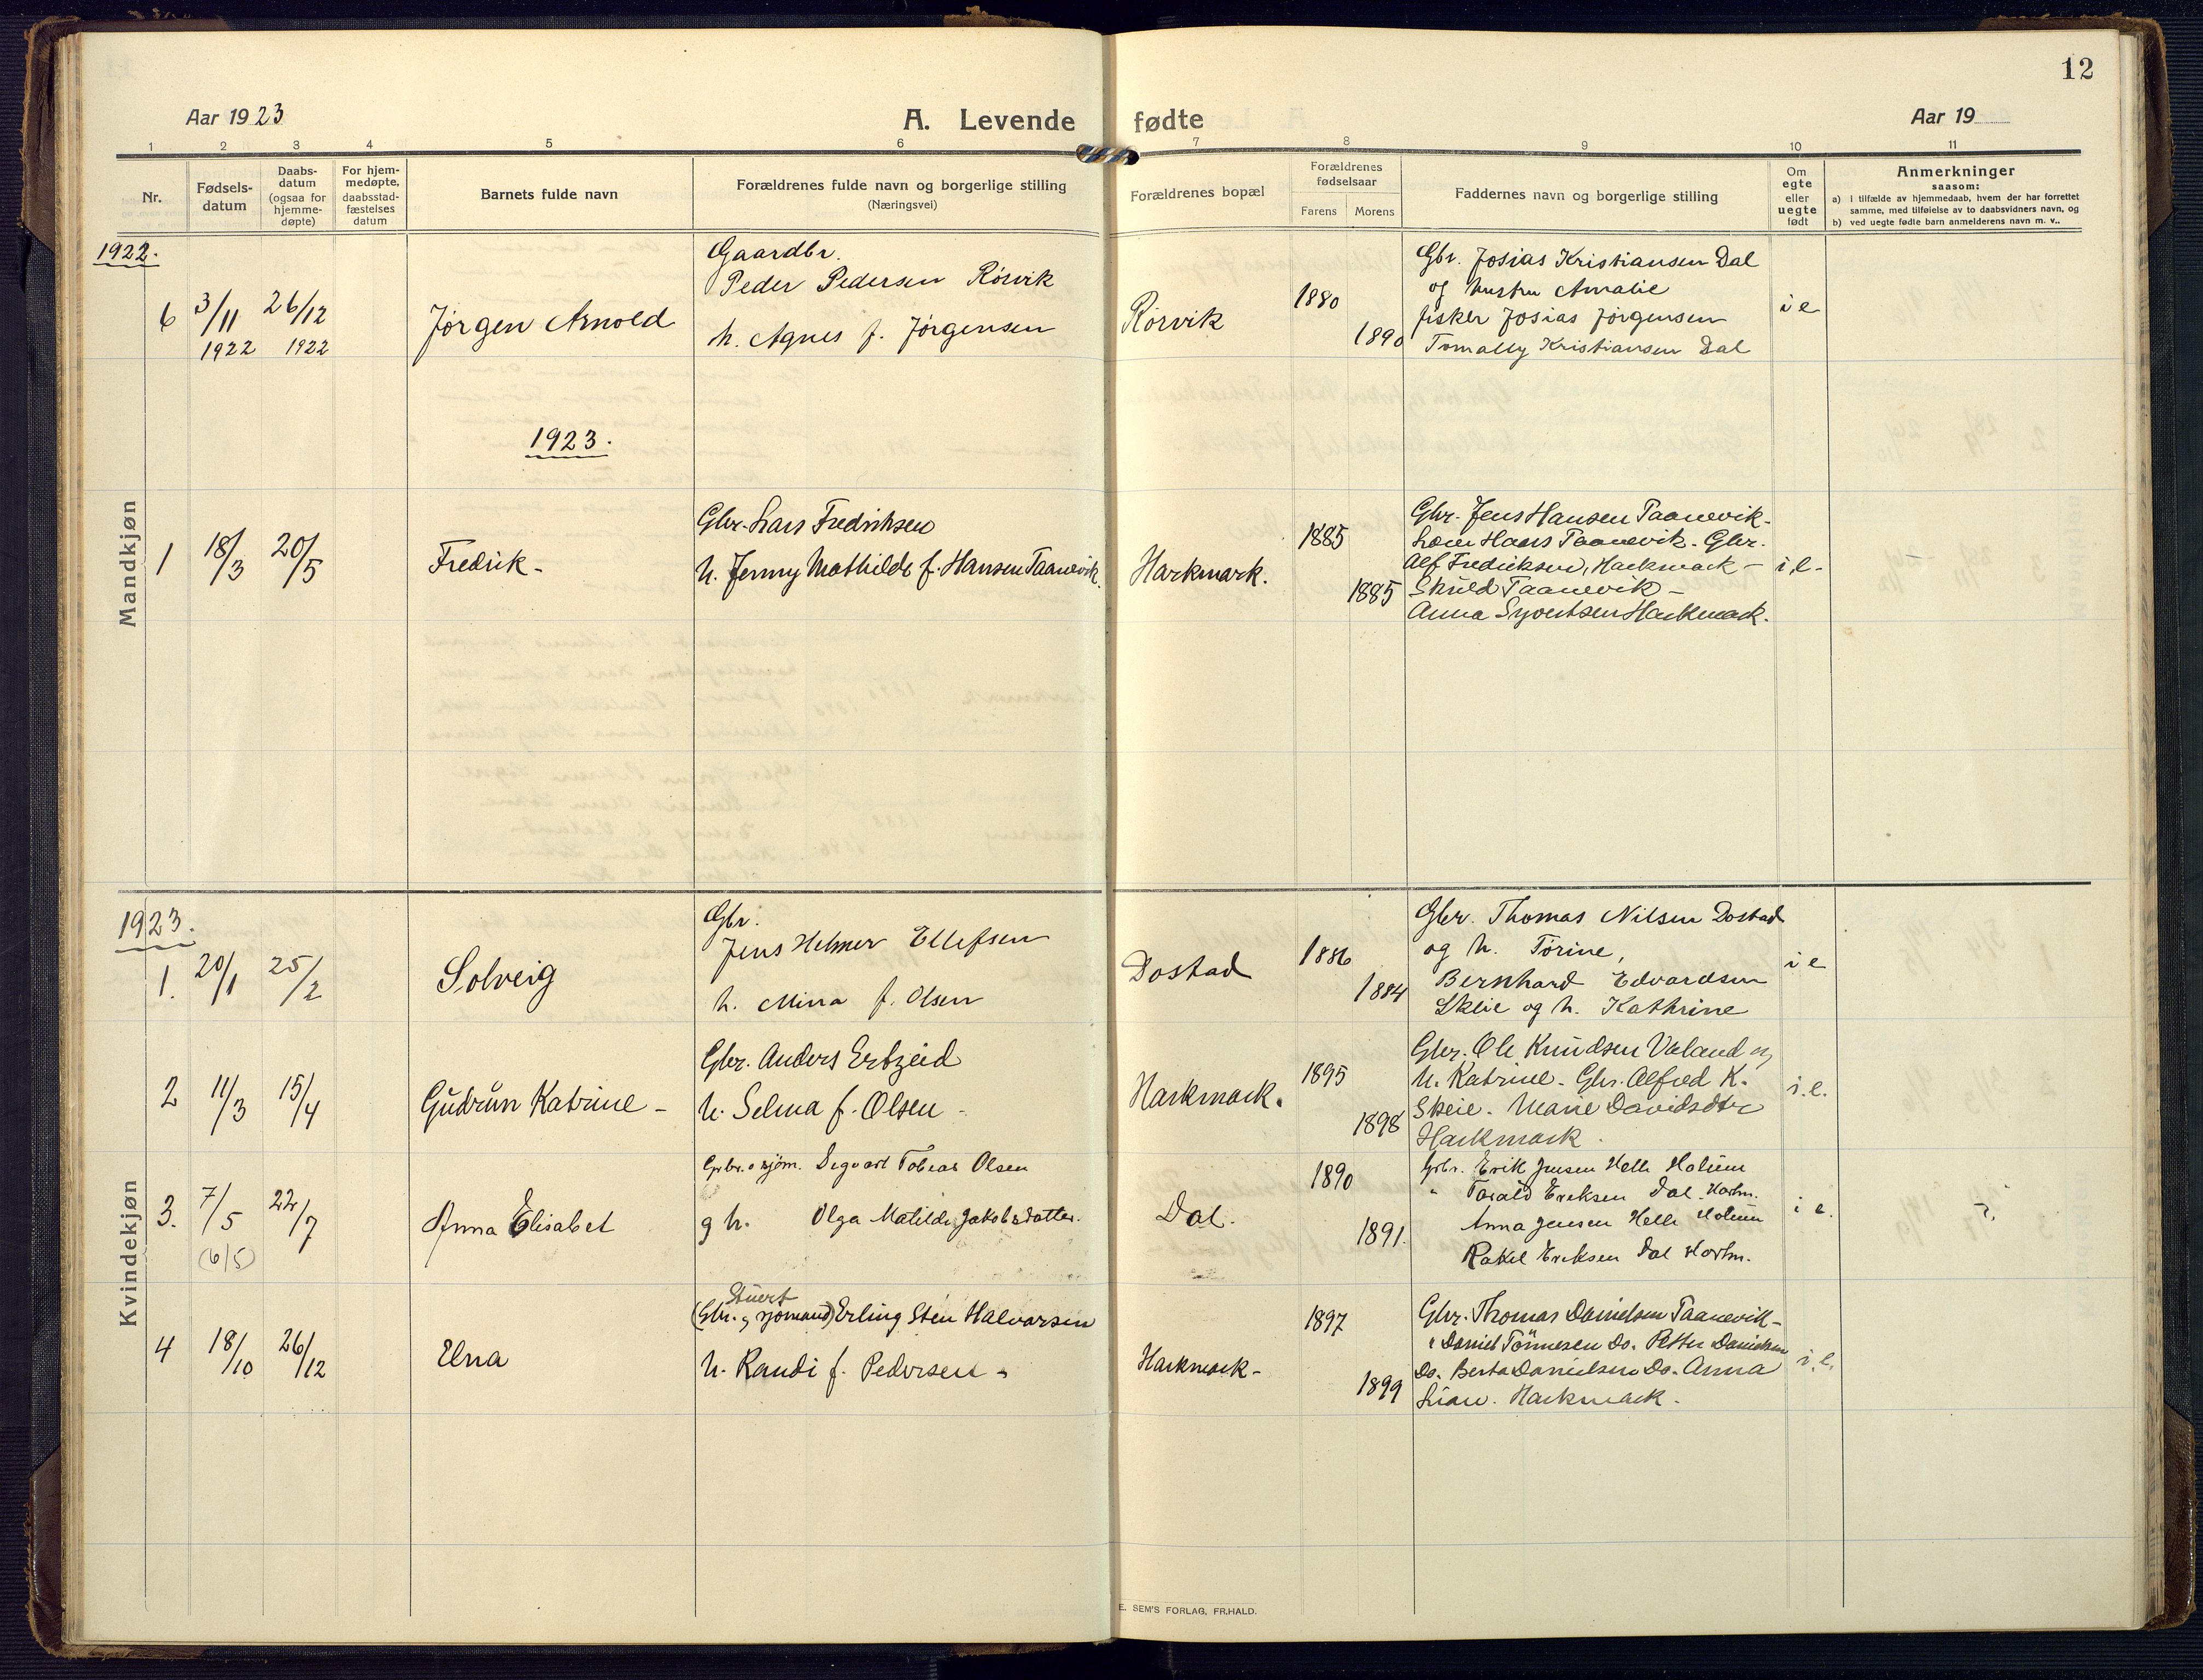 12
Aar 1923
A. Levende fødte
Aar 19
1 2 3 4 5 6 7 8 9 10 11
Nr.
Fødsels-
datum
Daabs-
datum
(ogsaa for
hjemme-
døpte)
For hjem-
medøpte,
daabsstad-
fæstelses
datum
Barnets fulde navn
Forældrenes fulde navn og borgerlige stilling
(Næringsvei)
Forældrenes bopæl
Forældrenes
fødselsaar
Farens Morens
Faddernes navn og borgerlige stilling
Om
egte
eller
uegte
født
Anmerkninger
saasom:
a) i tilfælde av hjemmedaab, hvem der har forrettet
samme, med tilføielse av to daabsvidners navn, og
b) ved uegte fødte barn anmelderens navn m. v..
Mandkjøn
1922.
6 3/11 1922 26/12 1922
Jørgen Arnold
Gaardbr.
Peder Pedersen Rösvik
h. Agnes f. Jörgensen
Rörvik
1880
1890
Gbr. Josias Kristiansen Dal
og hustru Amalie
fisker Josias Jörgensen
Tomally Kristiansen Dal
i e
1923.
1 18/3 20/5
Fredrik -
Gbr. Lars Fredriksen
h. Jenny Mathilde f. Hansen Taanevik.
Harkmark.
1885
1885
Gbr. Jens Hansen Taanevik -
Haars Taanevik - Gbr.
Alf Fredriksen, Harkmark -
Skuld Taanevik -
Anna Syvertsen Harkmark.
i, e.-
Kvindekjøn
1923.
1. 20/1 25/2
Solveig
Gbr.
Jens Helmer Ellefsen
h. Mina f. Olsen
Dostad
1886
1884
Gbr. Thomas Nilsen Dostad
og h. Torine,
Bernhard Edvardsen
Skeie og h. Kathrine
i e
2 11/3 15/4
Gudrun Katrine -
Gbr. Anders Ertzeid
h. Selma f. Olsen -
Harkmark.
1895
1898
Gbr. Ole Knudsen Valand og
h. Katrine - Gbr. Alfred K.
Skeie - Marie Davidsdtr
Harkmark.
i.e.
3. 7/5 (6/5) 22/7
Anna Elisabet
Gbr. o sjöm. Segvart Tobias Olsen
g h. Olga Matilde Jakobsdatter.
Dal.
1890
1891.
Gbr. Erik Jensen Helle Holum
" Tarald Eriksen Dal. Harkm.
Anna Jensen Helle Holum
Rakel Eriksen Dal Harkm.
i e.
4 18/10 26/12
Elna
Stuert
(Gbr. og sjömand) Erling Sten Halvorsen
h. Randi f. Pedersen -
Harkmark -
1897
1899
Gbr. Thomas Danielsen Taanevik -
" Daniel Tönnesen Do. Petter Danielsen
Do. Berta Danielsen Do. Anna
Harkmark.
i. e.
E. SEM'S FORLAG, FR.HALD.